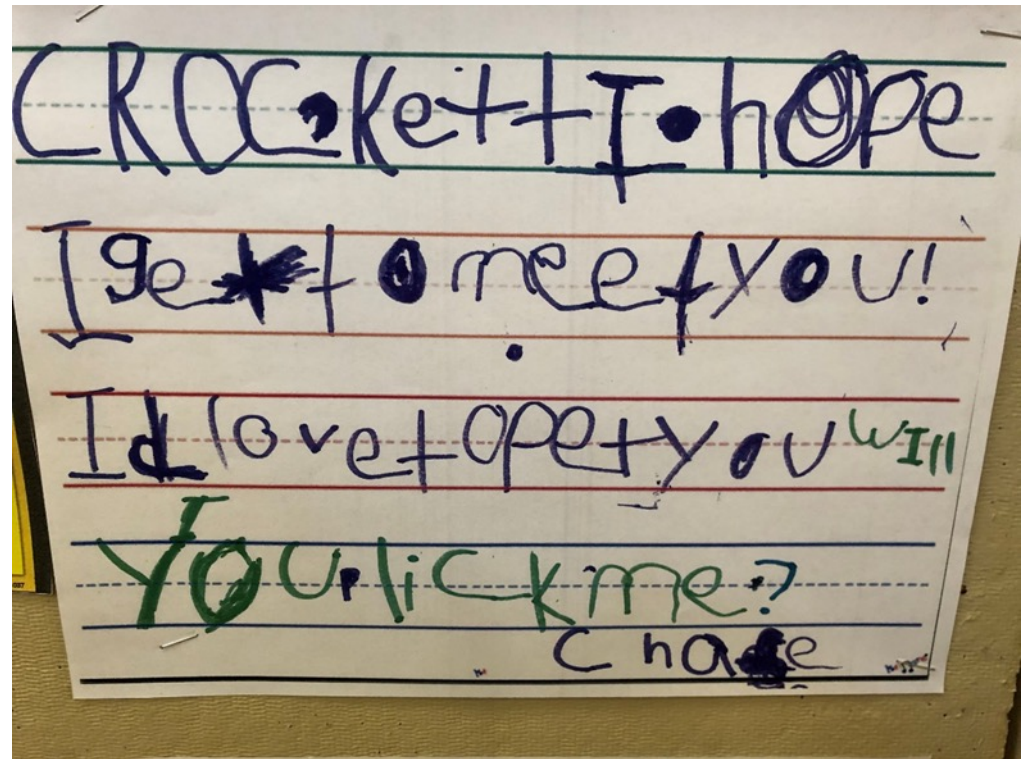 CROC.Kett I.hope
I get to meet you!
Id love to pet you WIll
You.lick me?
Chase